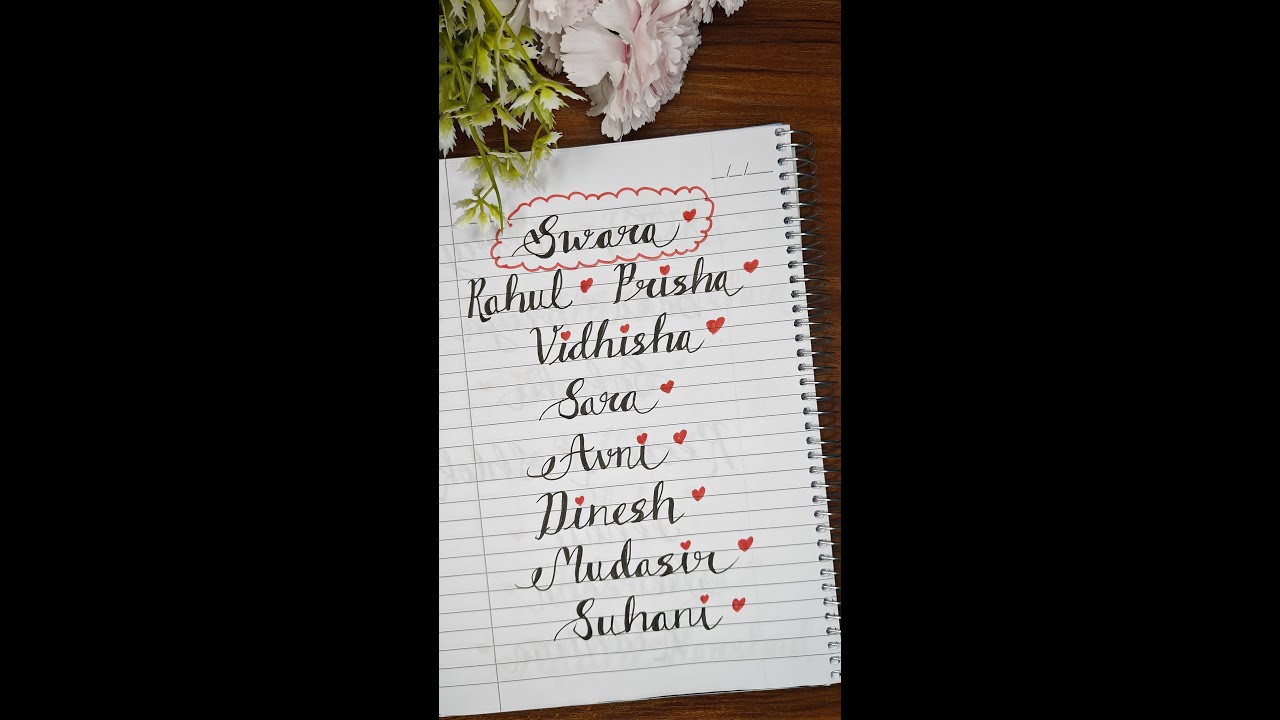 _/_/_
Swara
Rahul Prisha
Vidhisha
Sara
Avni
Dinesh
Mudasir
Suhani